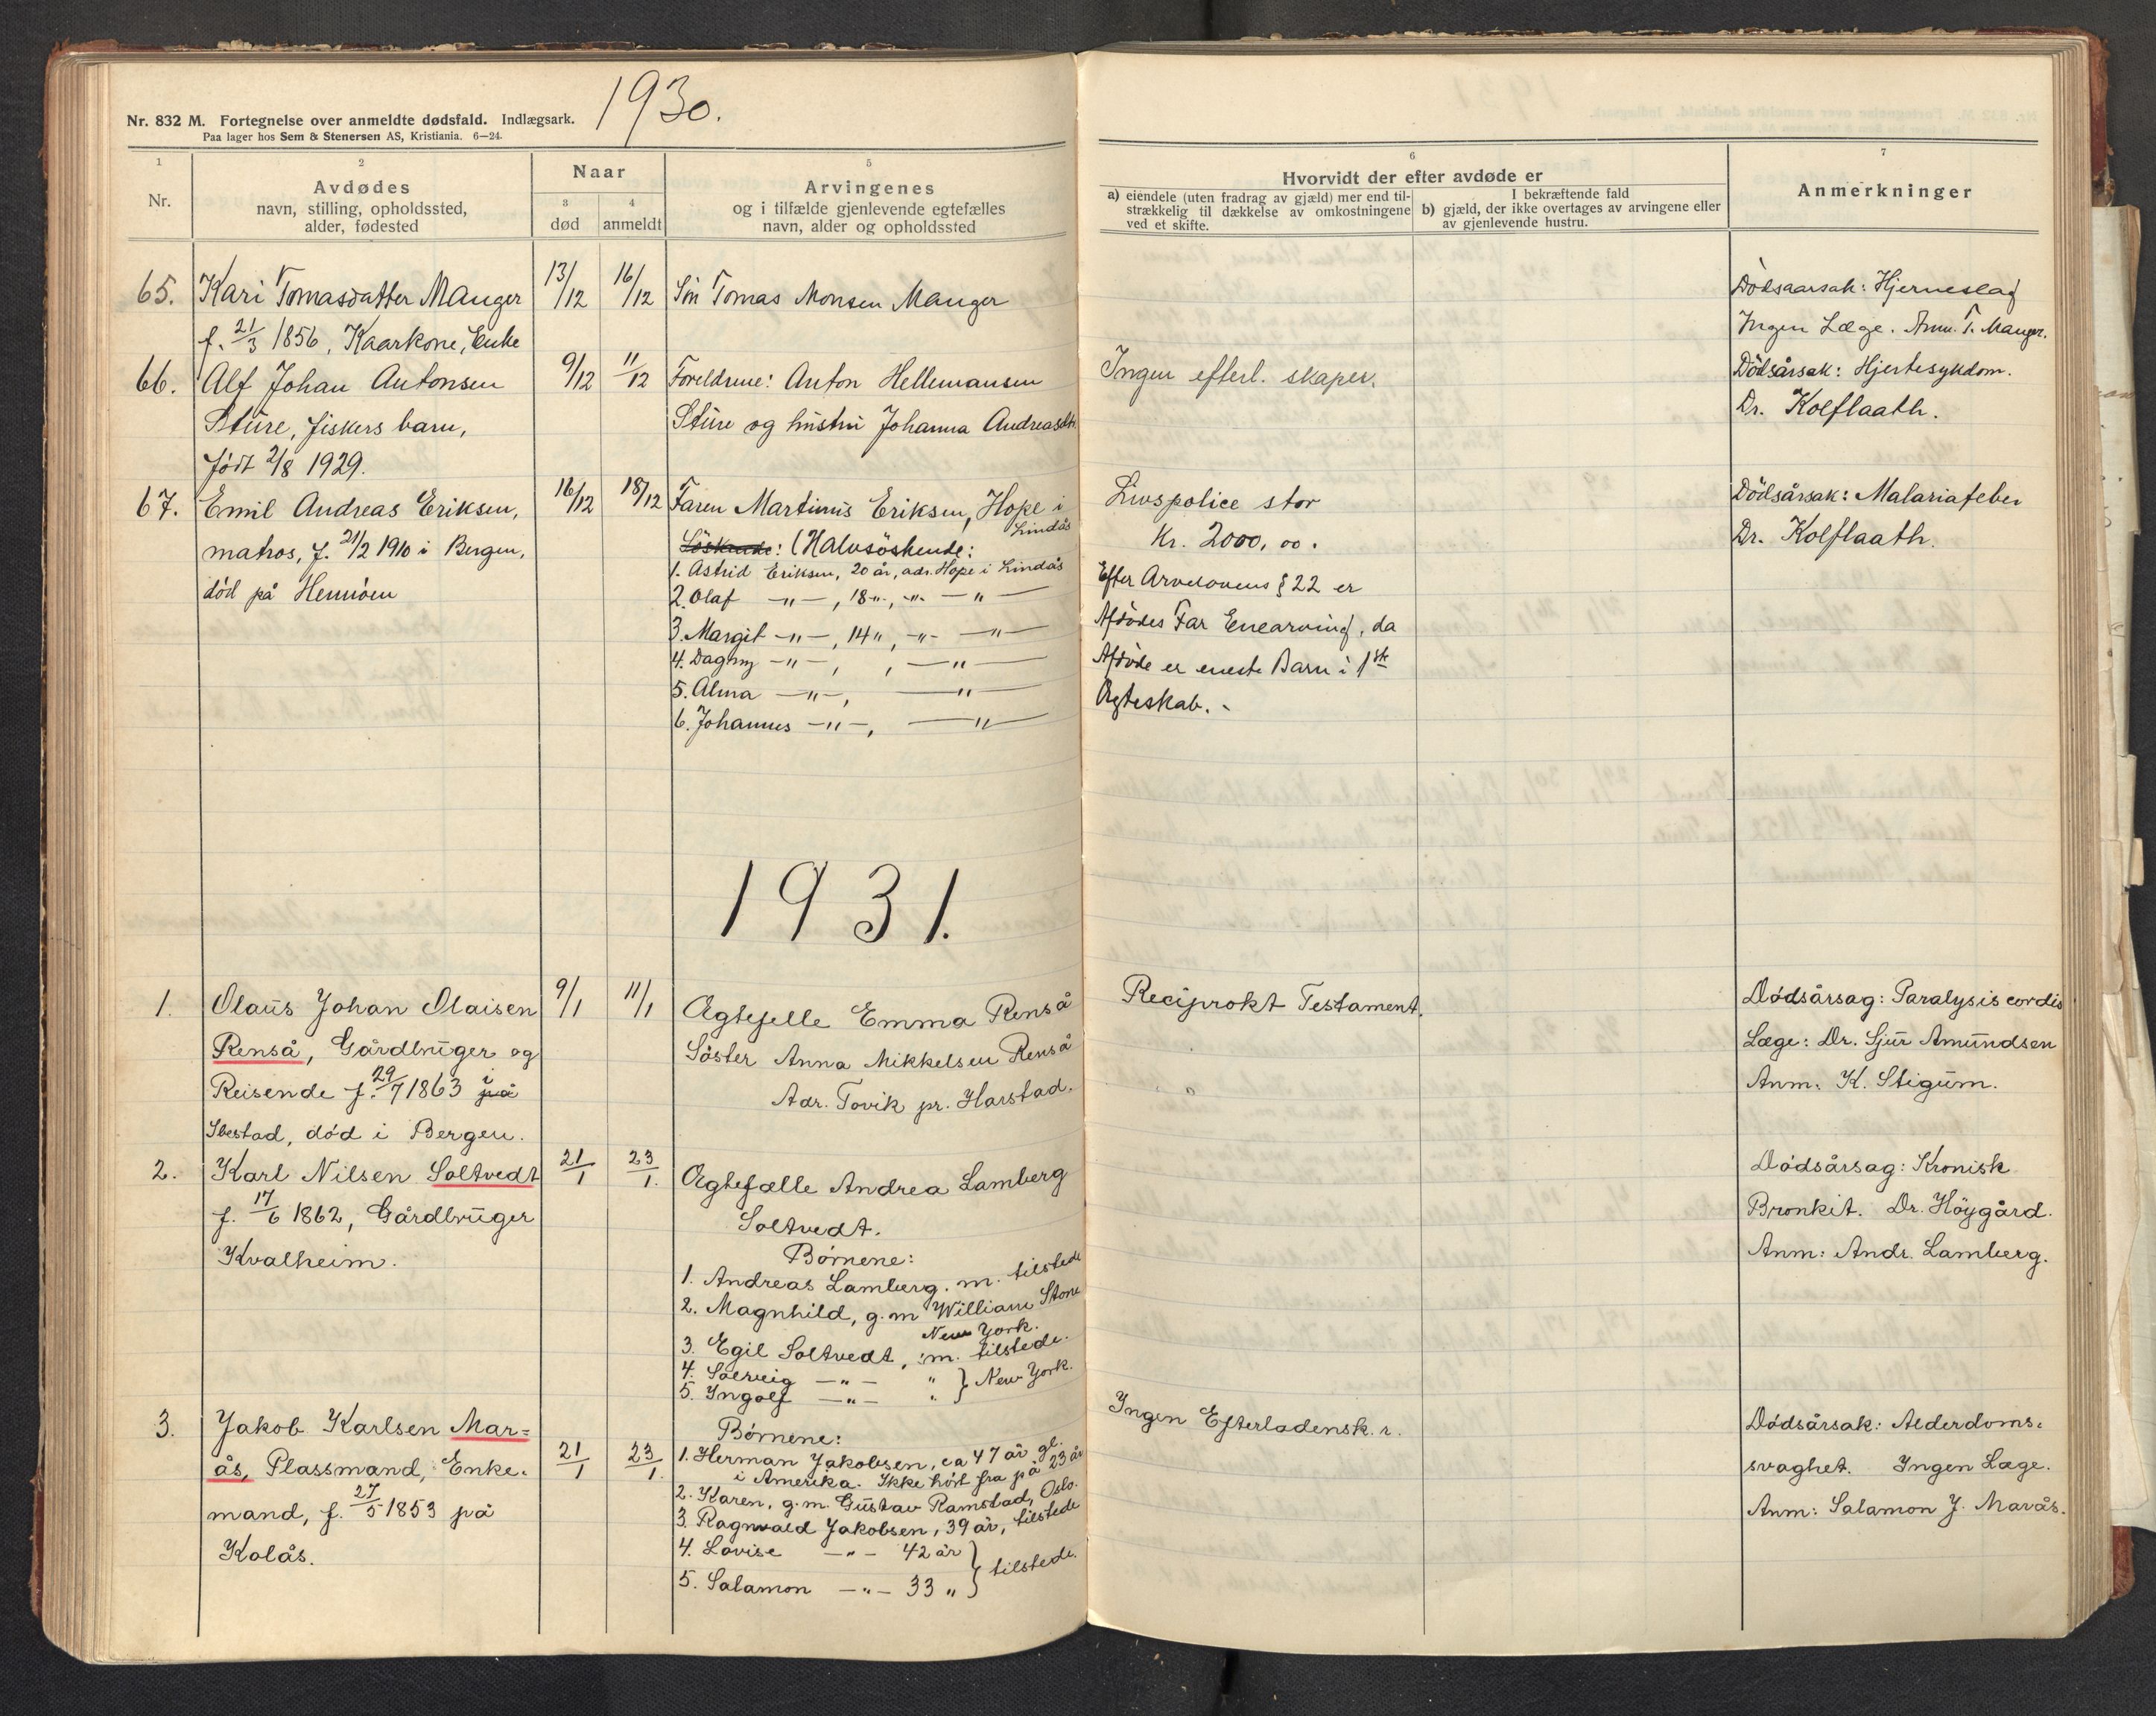 1930.
Nr. 832 M. Fortegnelse over anmeldte dødsfald. Indlægsark.
Paa lager hos Sem & Stenersen AS, Kristiania. 6—24.
1
Nr.
2
Avdødes
navn, stilling, opholdssted,
alder, fødested
Naar
3
død
4
anmeldt
5
Arvingenes
og i tilfælde gjenlevende egtefælles
navn, alder og opholdssted
6
Hvorvidt der efter avdøde er
a) eiendele (uten fradrag av gjæld) mer end til-
strækkelig til dækkelse av omkostningene
ved et skifte.
I bekræftende fald
b) gjæld, der ikke overtages av arvingene eller
av gjenlevende hustru.
7
Anmerkninger
65.
Kari Tomasdatter Manger
f. 21/3 1856, Kaarkone, Enke
13/12
16/12
Søn Tomas Monsen Manger
Dødsaarsak: Hjerneslag
Ingen Læge. Anm. T. Manger.
66.
Alf Johan Antonsen
Stüre, fiskers barn,
født 2/8 1929.
9/12
11/12
Foreldrene: Anton Hellemansen
Stüre og hüstrü Johanna Andreasdtr.
Ingen efterl. skaper.
Dödsårsak: Hjertesykdom.
Dr. Kolflaath.
67.
Emil Andreas Eriksen,
matros, f. 21/2 1910 i Bergen,
död på Hennöen
16/12
18/12
Faren Martinüs Eriksen, Hope i
Lindås
Söskende: (Halvsöskende:
1. Astrid Eriksen, 20 år, adr. Hope i Lindås
2. Olaf —"—, 18-"-, -"- —"—
3. Margit —"—, 14 ", -"- —"—
4. Dagny —"—, , —"—
5. Alma —"—, —"—
6. Johannes —"—, —"—
Livspolice stor
Kr. 2000,00.
Efter Arvelovens § 22 er
Afdödes Far Enearving, da
Afdöde er eneste Barn i 1ste
Ægteskab. -
Dödsårsak: Malariafeber
Dr. Kolflaath.
1931.
1.
Olaüs Johan Olaisen
Renså, Gårdbrüger og
Reisende f. 29/7 1863 i på
Ibestad, död i Bergen.
9/1
11/1
Ægtefelle Emma Renså
Söster Anna Mikkelsen Renså
Adr. Tovik pr. Harstad.
Reciprokt Testament.
Dödsårsag: Paralysis cordis
Læge: Dr. Sjür Amündsen
Anm: K. Stigüm.
2.
Karl Nilsen Soltvedt
f. 17/6 1862, Gårdbrüger
Kvalheim.
21/1
23/1.
Ægtefælle Andrea Lamberg
Soltvedt.
Börnene:
1. Andreas Lamberg. m. tilstede
2. Magnhild, g.m William Stone
New York.
3. Egil Soltvedt, m. tilstede.
4. Solveig —"— " } New York.
5. Ingolf —"— "
Dödsårsag: Kronisk
Bronkit. Dr. Höygård.
Anm: Andr. Lamberg.
3.
Jakob Karlsen Mar=
ås, Plassmand, Enke.
mand, f. 27/5 1853 på
Kolås.
21/1
23/1.
Börnene:
1. Herman Jakobsen, ca 47 år gl.
i Amerika. Ikke hört fra på 23 år
2. Karen, g.m. Güstav Ramstad, Oslo.
3. Ragnvald Jakobsen, 39 år, tilstede
4. Lovise —"— 42 år } tilstede.
5. Salamon —"— 33 "
Ingen Efterladensk. r.
Dödsårsak: Alderdoms=
svaghet. Ingen Læge.
Anm: Salamon J. Marås.